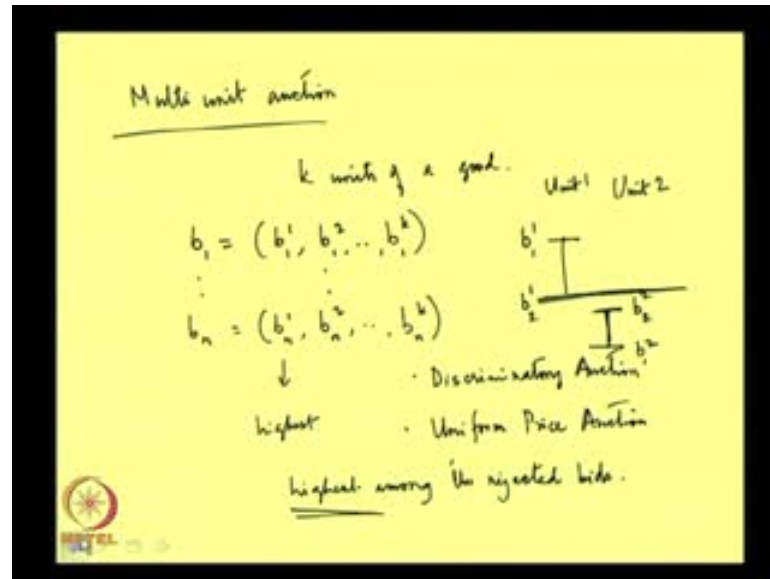 Multi unit auction
k units of a good.
Unit 1 Unit 2
b₁ = (b₁¹, b₁², .., b₁ᵏ)
b₁¹
: :
b₂¹
b₂²
bₙ = (bₙ¹, bₙ², .., bₙᵏ)
b₁²
↓
· Discriminatory Auction
highest
· Uniform Price Auction
highest among the rejected bids.
NPTEL